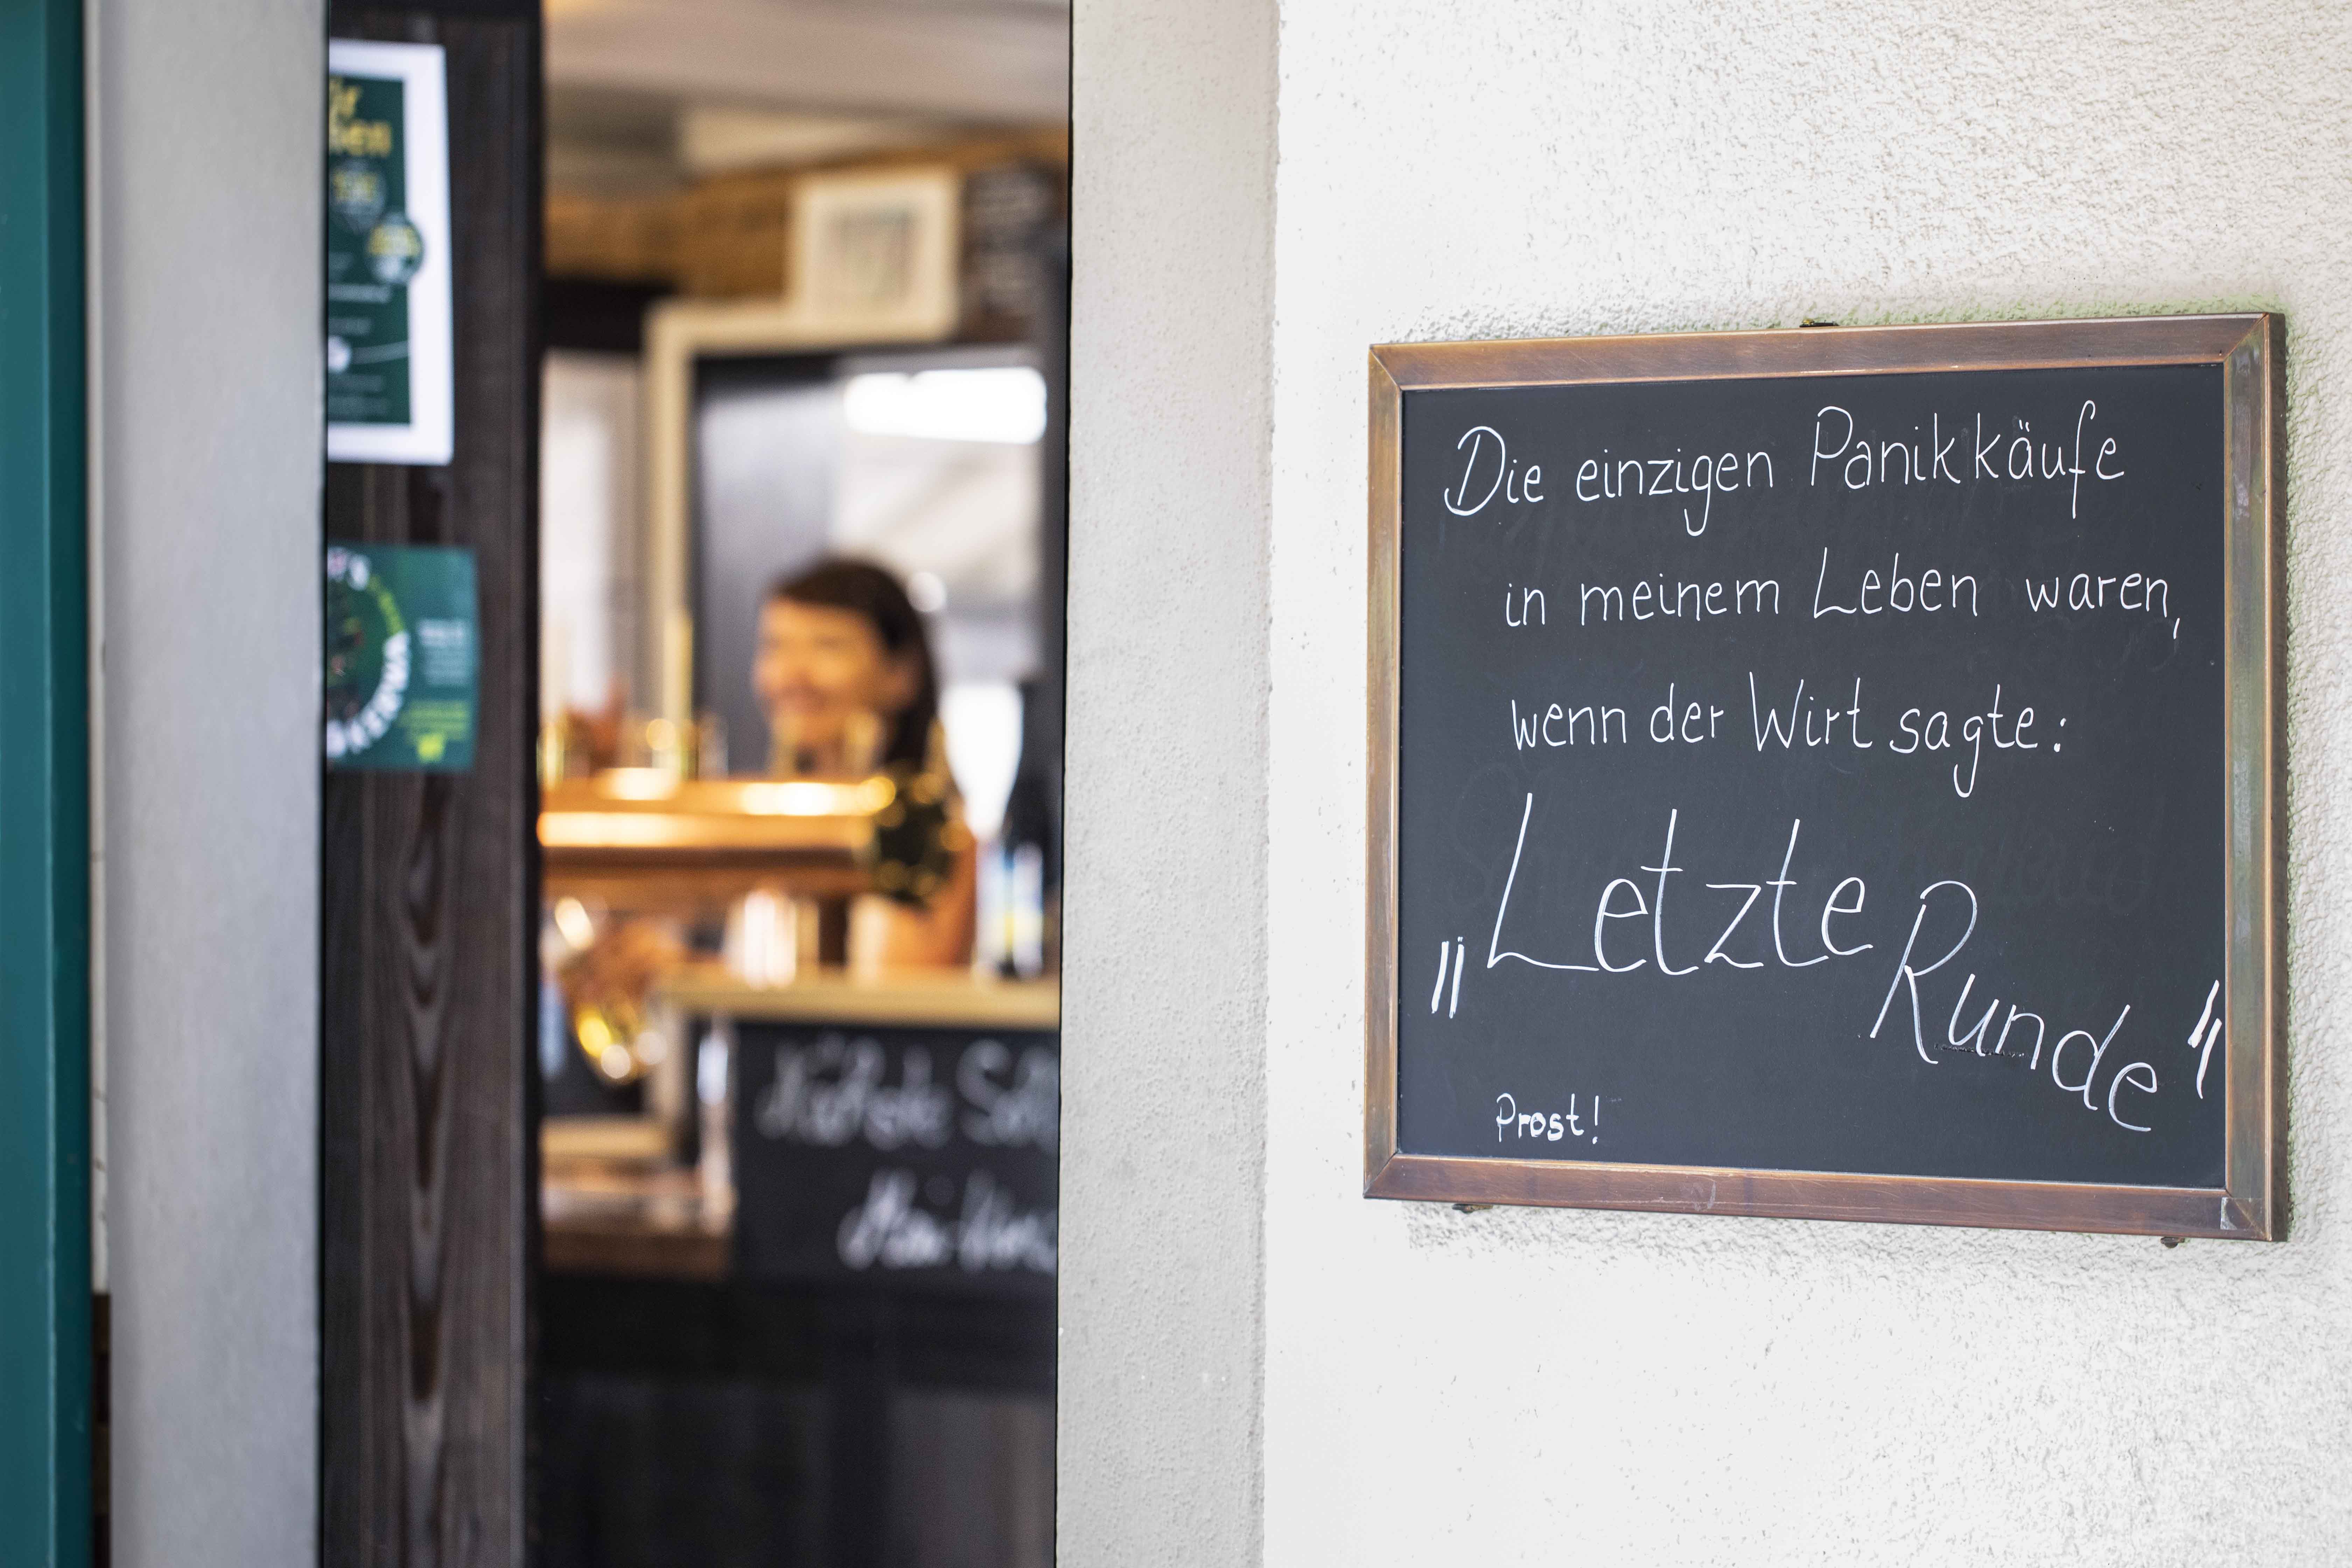 Die einzigen Panikkäufe
in meinem Leben waren,
wenn der Wirt sagte:
„Letzte Runde“
Prost!